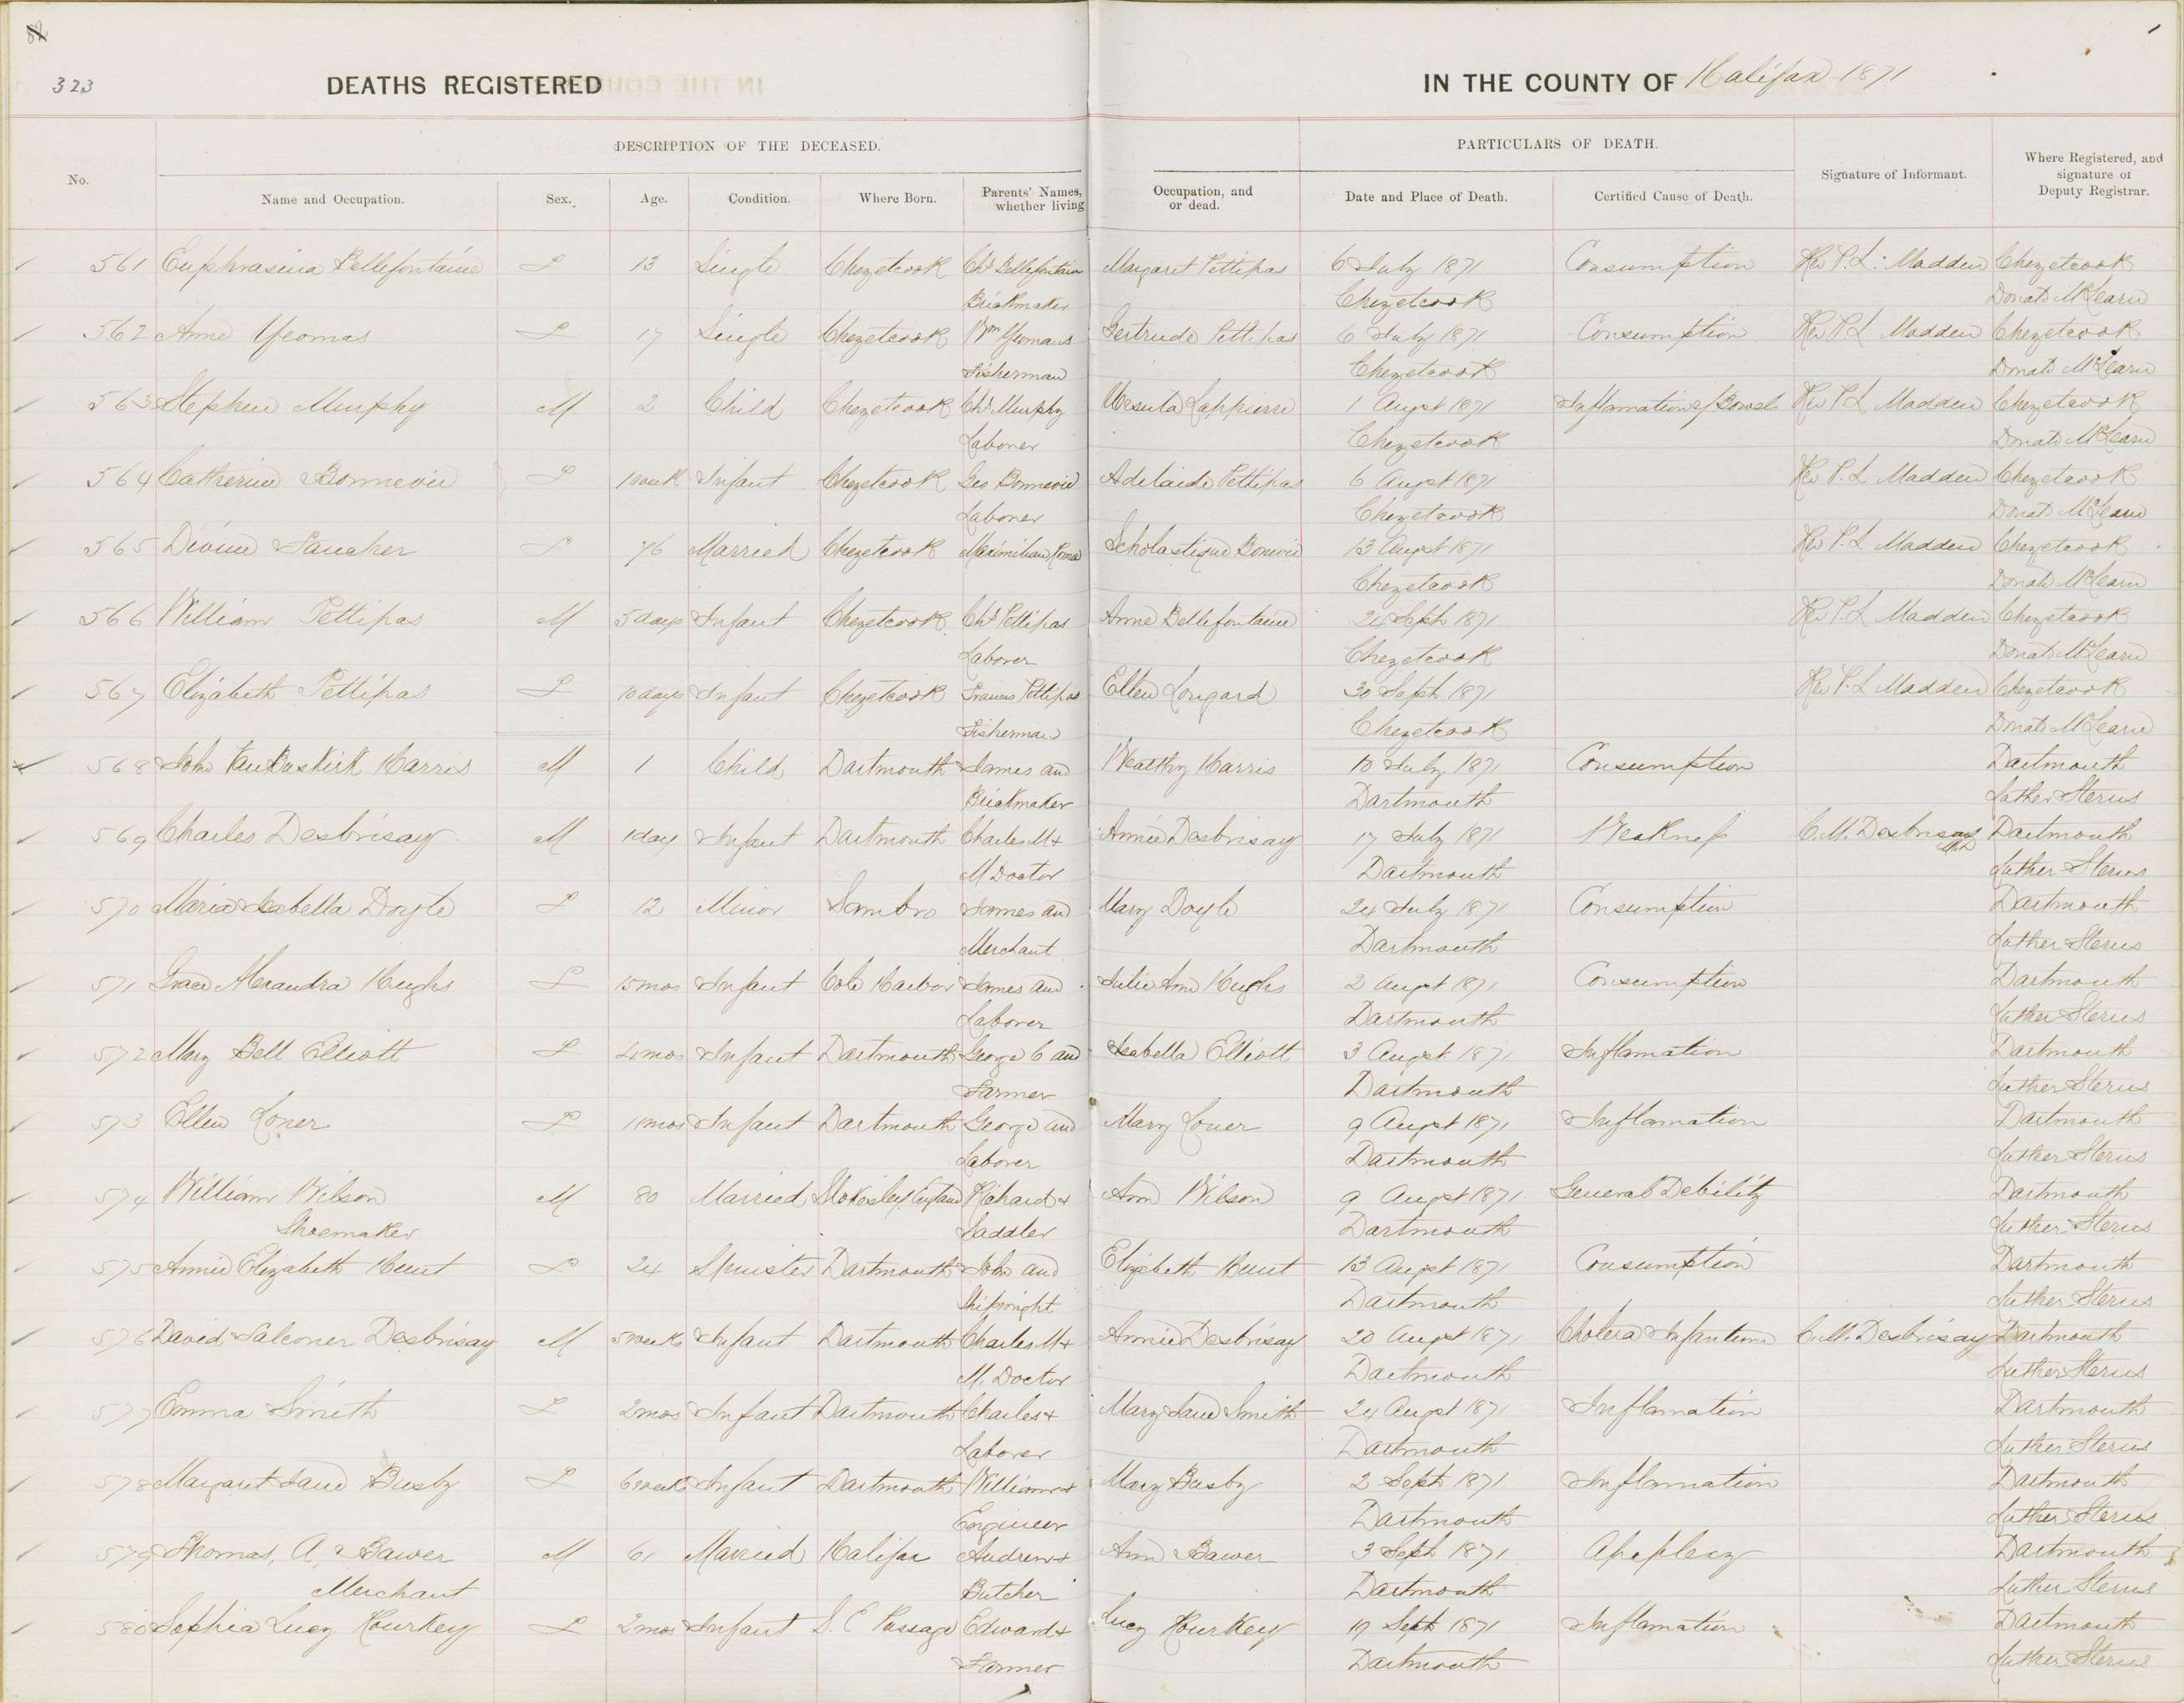 323
DEATHS REGISTERED
IN THE COUNTY OF Halifax 1871
DESCRIPTION OF THE DECEASED.
PARTICULARS OF DEATH.
No. Name and Occupation. Sex. Age. Condition. Where Born. Parents' Names, whether living Occupation, and or dead. Date and Place of Death. Certified Cause of Death. Signature of Informant. Where Registered, and signature of Deputy Registrar.
561 Euphrasina Bellefontaine F 13 Single Chezetcook Chs Bellefontain Margaret Pettipas 6 July 1871 Consumption Rev P. L. Madden Chezetcook
Brickmaker Chezetcook Donald McLearn
562 Anne Yeomas F 17 Single Chezetcook Wm Yeomans Gertrude Pettipas 6 July 1871 Consumption Rev P. L Madden Chezetcook
Fisherman Chezetcook Donald McLearn
563 Stephen Murphy M 2 Child Chezetcook Chs Murphy Ursula Lappierre 1 Augst 1871 Inflamation of Bowels Rev P. L Madden Chezetcook
Laborer Chezetcook Donald McLearn
564 Catherine Bonnevie F 1 week Infant Chezetcook Geo Bonnevie Adelaide Pettipas 6 Augst 1871 Rev P. L Madden Chezetcook
Laborer Chezetcook Donald McLearn
565 Divine Faucher F 76 Married Chezetcook Maximilian Roma Scholastique Bonnevie 13 Augst 1871 Rev P. L Madden Chezetcook
Chezetcook Donald McLearn
566 William Pettipas M 5 days Infant Chezetcook Chs Pettipas Anne Bellefontaine 24 Sept 1871 Rev P. L Madden Chezetcook
Laborer Chezetcook Donald McLearn
567 Elizabeth Pettipas F 10 days Infant Chezetcook Francis Pettipas Ellen Longard 30 Sept 1871 Rev P. L Madden Chezetcook
Fisherman Chezetcook Donald McLearn
568 John VanBuskirk Harris M 1 Child Dartmouth James and Wealthy Harris 10 July 1871 Consumption Dartmouth
Brickmaker Dartmouth Luther Sterns
569 Charles Desbrisay M 1 day Infant Dartmouth Charles M + Annie Desbrisay 17 July 1871 Weakness C. M. Desbrisay M.D Dartmouth
M Doctor Dartmouth Luther Sterns
570 Maria Isabella Doyle F 12 Minor Sambro James and Mary Doyle 24 July 1871 Consumption Dartmouth
Merchant Dartmouth Luther Sterns
571 Grace Alexandra Hughs F 15 mos Infant Cole Harbor James and Julie Ann Hughs 2 Augst 1871 Consumption Dartmouth
Laborer Dartmouth Luther Sterns
572 Mary Bell Elliott F 4 mos Infant Dartmouth George C and Isabella Elliott 3 Augst 1871 Inflamation Dartmouth
Farmer Dartmouth Luther Sterns
573 Ellen Loner F 11 mos Infant Dartmouth George and Mary Loner 9 Augst 1871 Inflamation Dartmouth
Laborer Dartmouth Luther Sterns
574 William Wilson M 80 Married Stokesley England Richard + Ann Wilson 9 Augst 1871 General Debility Dartmouth
Shoemaker Saddler Dartmouth Luther Sterns
575 Annie Elizabeth Hunt F 24 Spinister Dartmouth John and Elizabeth Hunt 13 Augst 1871 Consumption Dartmouth
Shipwright Dartmouth Luther Sterns
576 David Falconer Desbrisay M 5 weeks Infant Dartmouth Charles M + Annie Desbrisay 20 Augst 1871 Cholera Infantum C. M. Desbrisay Dartmouth
M. Doctor Dartmouth Luther Sterns
577 Emma Smith F 2 mos Infant Dartmouth Charles + Mary Jane Smith 24 Augst 1871 Inflamation Dartmouth
Laborer Dartmouth Luther Sterns
578 Margaret Jane Busby F 6 week Infant Dartmouth William + Mary Busby 2 Sept 1871 Inflamation Dartmouth
Engineer Dartmouth Luther Sterns
579 Thomas, A, Bawer M 61 Married Halifax Andrew + Ann Bawer 3 Sept 1871 Apoplexy Dartmouth
Merchant Butcher Dartmouth Luther Sterns
580 Sophia Lucy Hourkey F 2 mos Infant S. E Passage Edward + Lucy Hourkey 17 Sept 1871 Inflamation Dartmouth
Farmer Dartmouth Luther Sterns